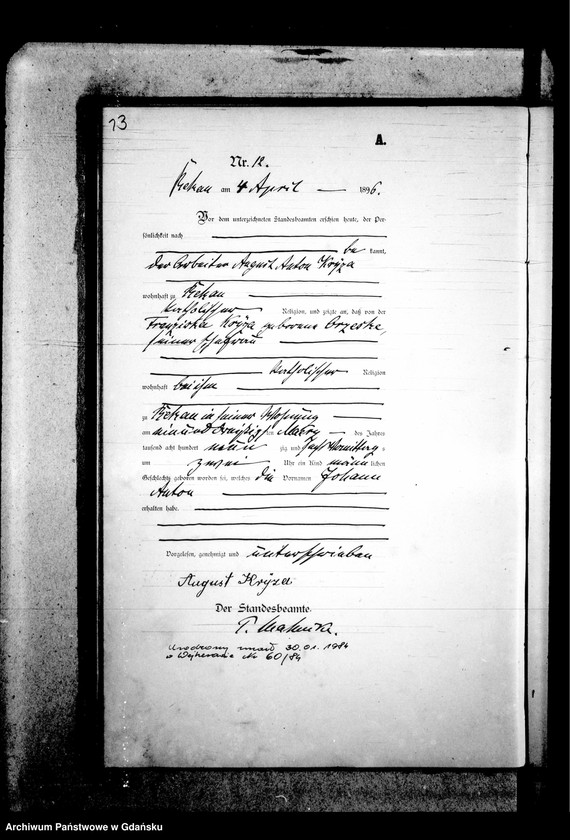 13
A.
Nr. 12.
Rekau am 4 April 1896.
Vor dem unterzeichneten Standesbeamten erschien heute, der Per-
sönlichkeit nach
be kannt,
der Arbeiter August Anton Krÿza
wohnhaft zu Rekau
katholischer Religion, und zeigte an, daß von der
Franziska Krÿza geborene Grzeske,
seiner Ehefrau
katholischer Religion
wohnhaft bei ihm
zu Rekau in seiner Wohnung
am einunddreißigsten März des Jahres
tausend acht hundert neun zig und sechs Vormittags
um zwei Uhr ein Kind männlichen
Geschlechts geboren worden sei, welches die Vornamen Johann
Anton
erhalten habe.
Vorgelesen, genehmigt und unterschrieben
August Krÿza
Der Standesbeamte.
Urodzony zmarł 30.01.1984
w Wejherowie Nr 60/84
Archiwum Państwowe w Gdańsku